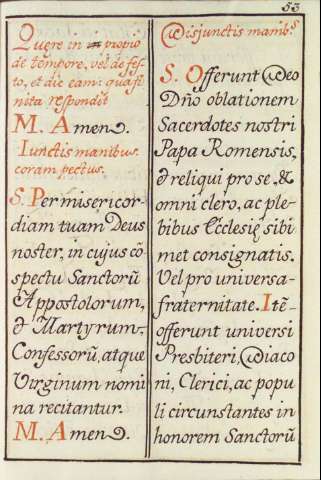 53
Quere in propio
de tempore, vel de fes-
to, et dic eam: qua fi
nita respondit
M. Amen.
Iunctis manibus
coram pectus.
S. Per misericor
diam tuam Deus
noster, in cujus cõ
spectu Sanctorũ
Appostolorum,
& Martyrum,
Confessorũ, atque
Virginum nomi
na recitantur.
M. Amen.
Disjunctis manibs
S. Offerunt Deo
Dño oblationem
Sacerdotes nostri
Papa Romensis,
& reliqui pro se, &
omni clero, ac ple-
bibus Ecclesię sibi
met consignatis.
Vel pro universa-
fraternitate. Itẽ-
offerunt universi
Presbiteri, Diaco
ni, Clerici, ac popu
li circunstantes in
honorem Sanctorũ